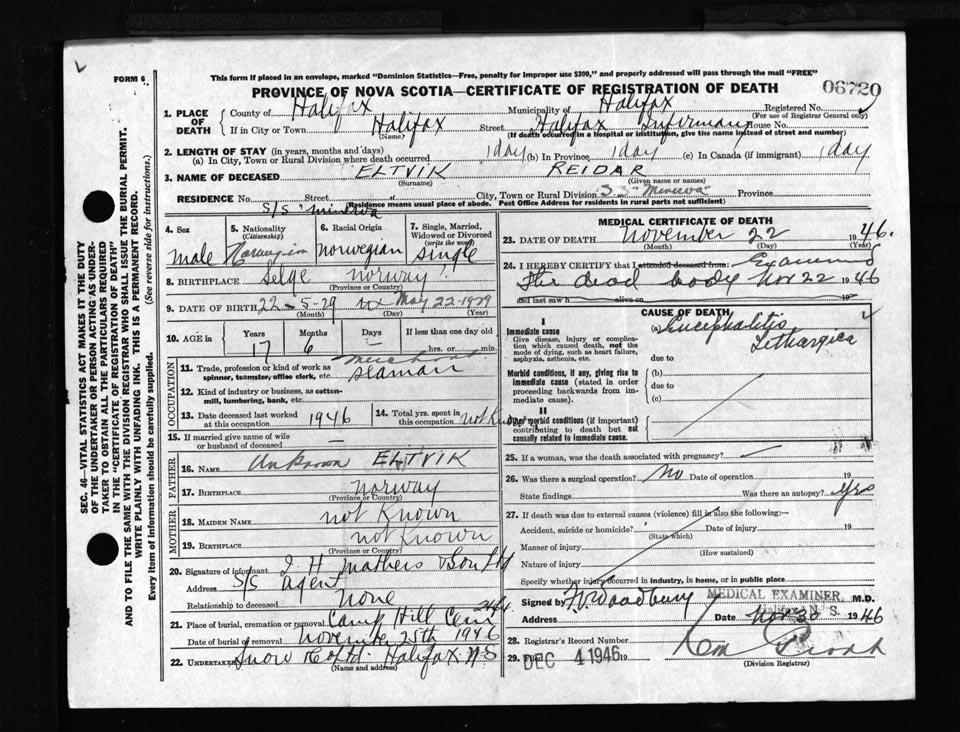 FORM 6
This form if placed in an envelope, marked "Dominion Statistics—Free, penalty for improper use $300," and properly addressed will pass through the mail "FREE"
PROVINCE OF NOVA SCOTIA—CERTIFICATE OF REGISTRATION OF DEATH
06720
1. PLACE OF DEATH
County of Halifax Municipality of Halifax Registered No.
(For use of Registrar General only)
If in City or Town Halifax Street Halifax Infirmary House No.
(Name) (If death occurred in a Hospital or institution, give the name instead of street and number)
2. LENGTH OF STAY (in years, months and days)
(a) In City, Town or Rural Division where death occurred 1 day (b) In Province 1 day (c) In Canada (if immigrant) 1 day
3. NAME OF DECEASED ELTVIK REIDAR
(Surname) (Given name or names)
RESIDENCE No. Street City, Town or Rural Division S.S "Minerva" Province
S/S "Minerva" (Residence means usual place of abode. Post Office Address for residents in rural parts not sufficient)
4. Sex
male
5. Nationality
(Citizenship)
Norwegian
6. Racial Origin
norwegian
7. Single, Married, Widowed or Divorced
(write the word)
single
8. BIRTHPLACE Selge norway
(Province or Country)
9. DATE OF BIRTH 22-5-29 May 22-1929
(Month) (Day) (Year)
10. AGE in Years Months Days If less than one day old
17 6 — hrs. or min.
OCCUPATION
11. Trade, profession or kind of work as spinner, teamster, office clerk, etc. merchant seaman
12. Kind of industry or business, as cotton-mill, lumbering, bank, etc.
13. Date deceased last worked at this occupation 1946
14. Total yrs. spent in this occupation not Known
15. If married give name of wife or husband of deceased —
FATHER
16. NAME Unknown ELTVIK
17. BIRTHPLACE norway
(Province or Country)
MOTHER
18. MAIDEN NAME not Known
19. BIRTHPLACE not Known
(Province or Country)
20. Signature of informant I H Mathers & Son Ltd
Address S/S agent
Relationship to deceased None
21. Place of burial, cremation or removal Camp Hill Cem
Date of burial or removal November 25th 1946
22. Undertaker Snow & Co Ltd. Halifax N.S
(Name and address)
MEDICAL CERTIFICATE OF DEATH
23. DATE OF DEATH November 22 1946.
(Month) (Day) (Year)
24. I HEREBY CERTIFY that I attended deceased from: Examined
the dead body Nov 22 1946
and last saw h alive on 19
CAUSE OF DEATH
I
Immediate cause
Give disease, injury or complication which caused death, not the mode of dying, such as heart failure, asphyxia, asthenia, etc.
(a) Encephalitis Lethargica
due to
Morbid conditions, if any, giving rise to immediate cause (stated in order proceeding backwards from immediate cause).
(b)
due to
(c)
II
Other morbid conditions (if important) contributing to death but not causally related to immediate cause.
25. If a woman, was the death associated with pregnancy?
26. Was there a surgical operation? No Date of operation 19
State findings Was there an autopsy? Yes
27. If death was due to external causes (violence) fill in also the following:—
Accident, suicide or homicide? Date of injury 19
(State which)
Manner of injury
(How sustained)
Nature of injury
Specify whether injury occurred in industry, in home, or in public place
Signed by Woodbury MEDICAL EXAMINER M.D.
Address N. S. Date Nov 30 1946
28. Registrar's Record Number
29. DEC 4 1946 19
(Division Registrar)
SEC. 46—VITAL STATISTICS ACT MAKES IT THE DUTY
OF THE UNDERTAKER OR PERSON ACTING AS UNDER-
TAKER TO OBTAIN ALL THE PARTICULARS REQUIRED
IN THE "CERTIFICATE OF REGISTRATION OF DEATH"
AND TO FILE THE SAME WITH THE DIVISION REGISTRAR WHO SHALL ISSUE THE BURIAL PERMIT.
WRITE PLAINLY WITH UNFADING INK. THIS IS A PERMANENT RECORD.
Every item of information should be carefully supplied. (See reverse side for instructions.)